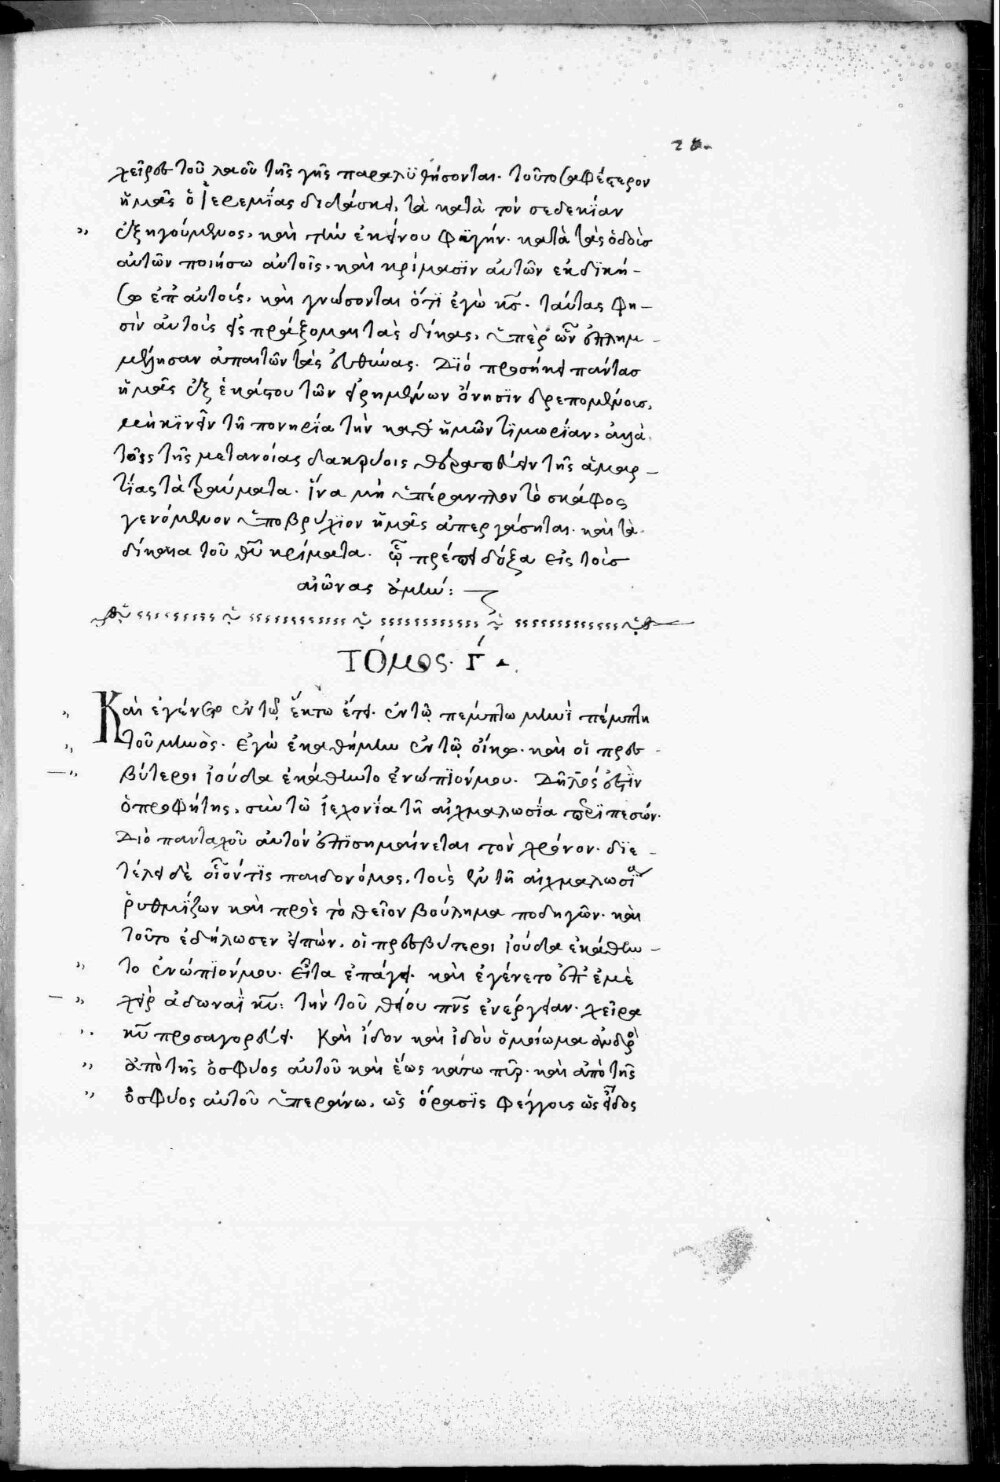 χεῖρες τοῦ λαοῦ τῆς γῆς παραλυθήσονται. τοῦτο σαφέστερον
ἡμᾶς ὁ Ἱερεμίας διδάσκει, τὰ κατὰ τὸν σεδεκίαν
ἐξηγούμενος, καὶ τὴν ἐκείνου φυγήν. κατὰ τὰς ὁδοὺς
αὐτῶν ποιήσω αὐτοῖς, καὶ κρίμασιν αὐτῶν ἐκδική-
σω ἐπ' αὐτούς, καὶ γνώσονται ὅτι ἐγὼ κς. ταύτας φη-
σὶν αὐτοὺς εἰσπράξομαι τὰς δίκας, ὑπὲρ ὧν ἐπλημ-
μέλησαν ἀπαιτῶν τὰς εὐθύνας. Διό προσήκει πάντας
ἡμᾶς ἐξ ἑκάστου τῶν εἰρημένων ὄνησιν δρεπομένους,
μὴ κινεῖν τῇ πονηρία τὴν καθ' ἡμῶν τιμωρίαν, ἀλλὰ
τοῖς τῆς μετανοίας δακρύοις θεραπεύειν τῆς ἁμαρ-
τίας τὰ τραύματα. ἵνα μὴ ὑπέραντλον τὸ σκάφος
γενόμενον ὑποβρύχιον ἡμᾶς ἀπεργάσηται. κατὰ τὰ
δίκαια τοῦ θῦ κρίματα. ᾧ πρέπει δόξα εἰς τοὺς
αἰῶνας ἀμήν:
ΤΌμος. Γ
Καὶ ἐγένετο ἐν τῷ ἕκτω ἔτει. ἐν τῷ πέμπτω μηνὶ πέμπτη
τοῦ μηνὸς. Ἐγὼ ἐκαθήμην ἐν τῷ οἴκω. καὶ οἱ πρεσ-
βύτεροι ἰούδα ἐκάθηντο ἐνώπιόν μου. Δῆλός ἐστιν
ὁ προφήτης, σὺν τῶ ἰεχονία τῆ αἰχμαλωσία περιπεσών.
Διό πανταχοῦ αὐτόν ἐπισημαίνεται τὸν χρόνον. διε-
τέλει δὲ οἷόν τις παιδονόμος, τοὺς ἐν τῆ αἰχμαλωσία
ῥυθμίζων καὶ πρὸς τὸ θεῖον βούλημα ποδηγῶν. καὶ
τοῦτο ἐδήλωσεν εἰπών. οἱ πρεσβύτεροι ἰούδα ἐκάθην-
το ἐνώπιόν μου. Εἶτα ἐπάγει. καὶ ἐγένετο ἐπ' ἐμὲ
χεὶρ ἀδωναῒ κῦ: τὴν τοῦ θείου πνς ἐνέργειαν. χεῖρα
κῦ προσαγορεύει. Καὶ ἴδον καὶ ἰδοὺ ὁμοίωμα ἀνδρὸς
ἀπὸ τῆς ὀσφύος αὐτοῦ καὶ ἕως κάτω πῦρ. καὶ ἀπὸ τῆς
ὀσφύος αὐτοῦ ὑπεράνω. ὡς ὅρασις φέγγους ὡς εἶδος